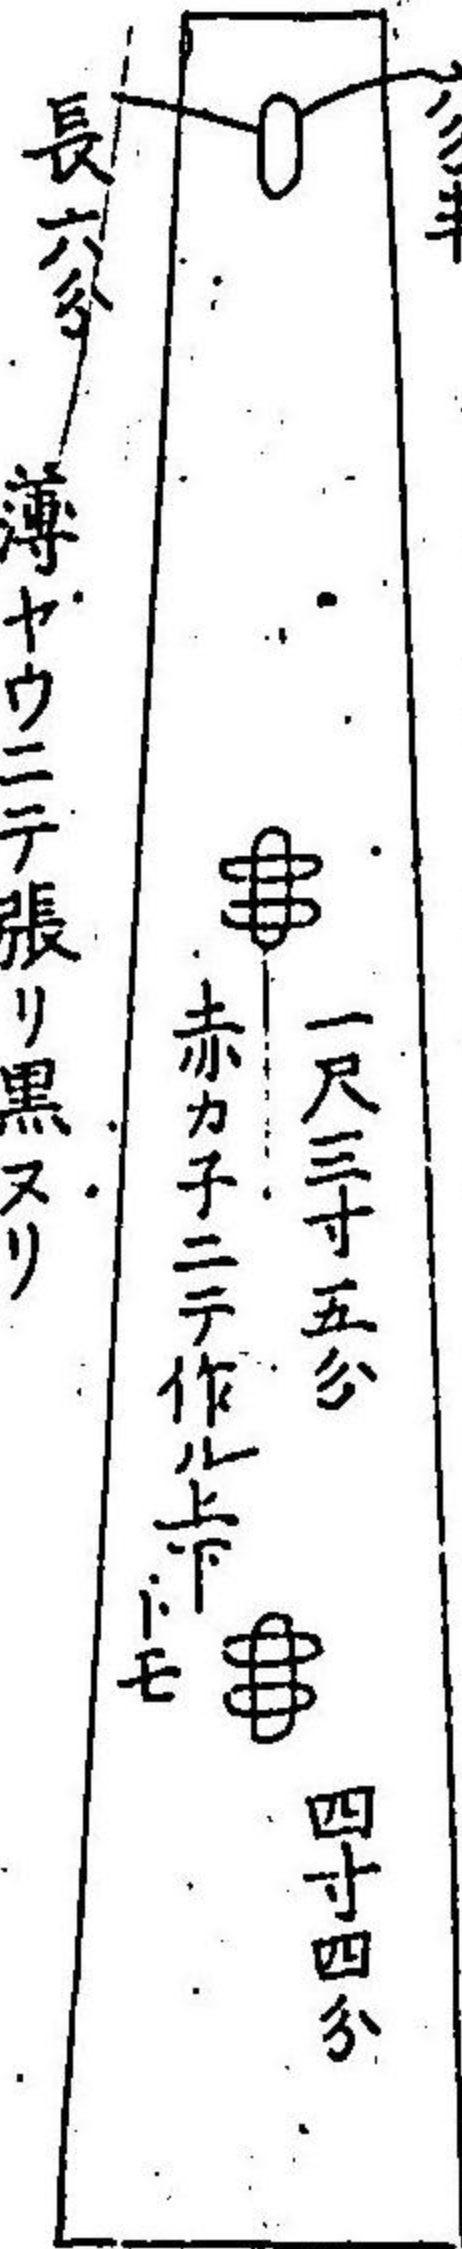 一尺三寸五分
四寸四分
赤カ子ニテ作ル上下トモ
長六分
薄ヤウニテ張リ黒ヌリ